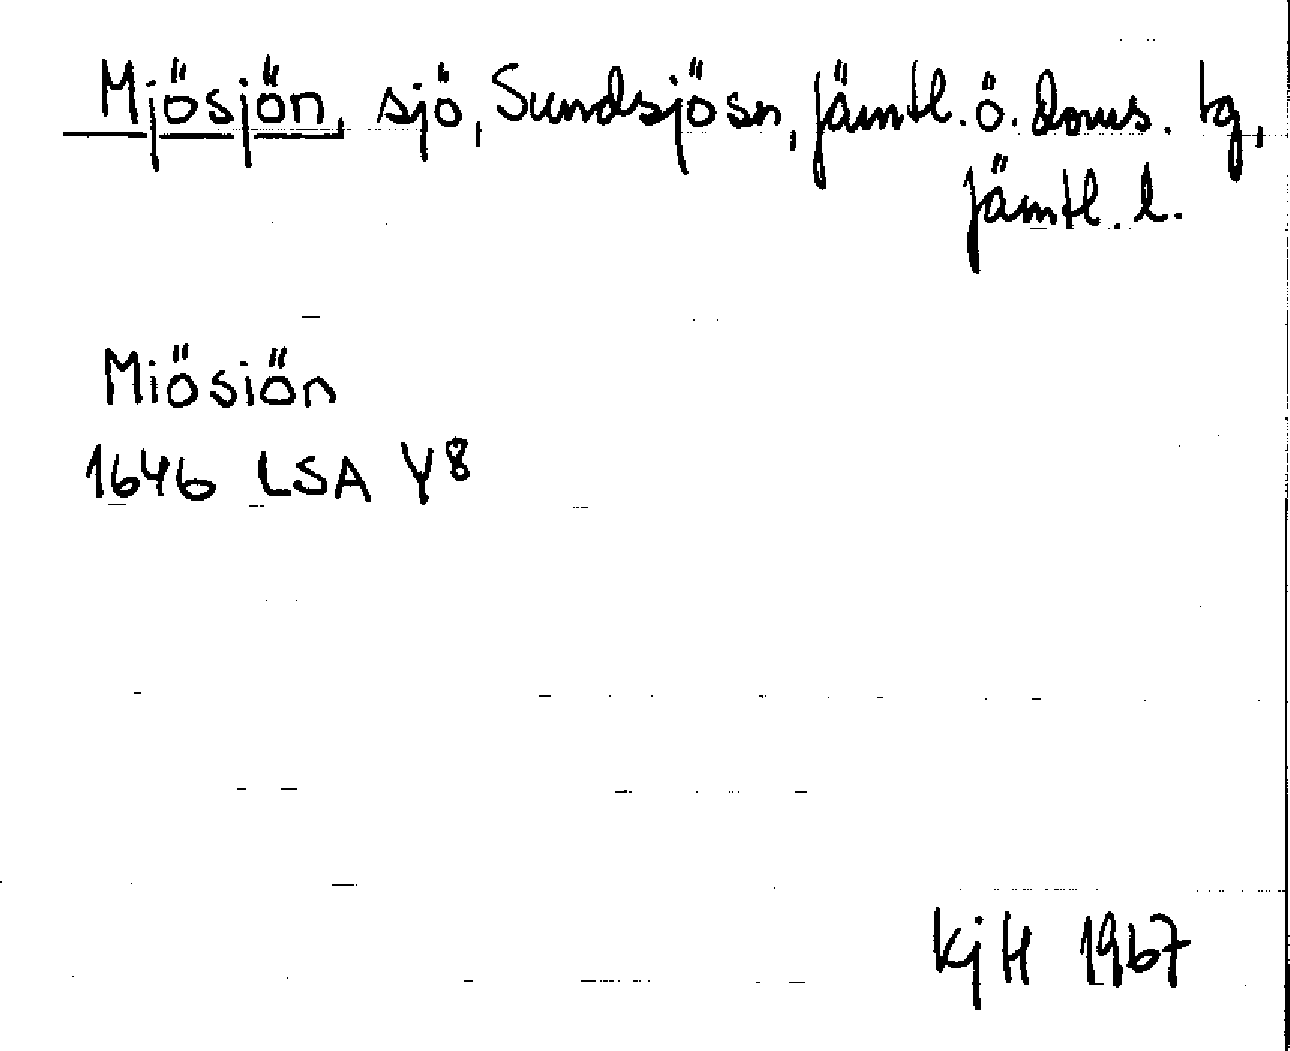 Mjösjön, sjö, Sundsjösn, Jämtl. ö. doms. tg,
Jämtl. l.
Miösiön
1646 LSA Y8
KjH 1967